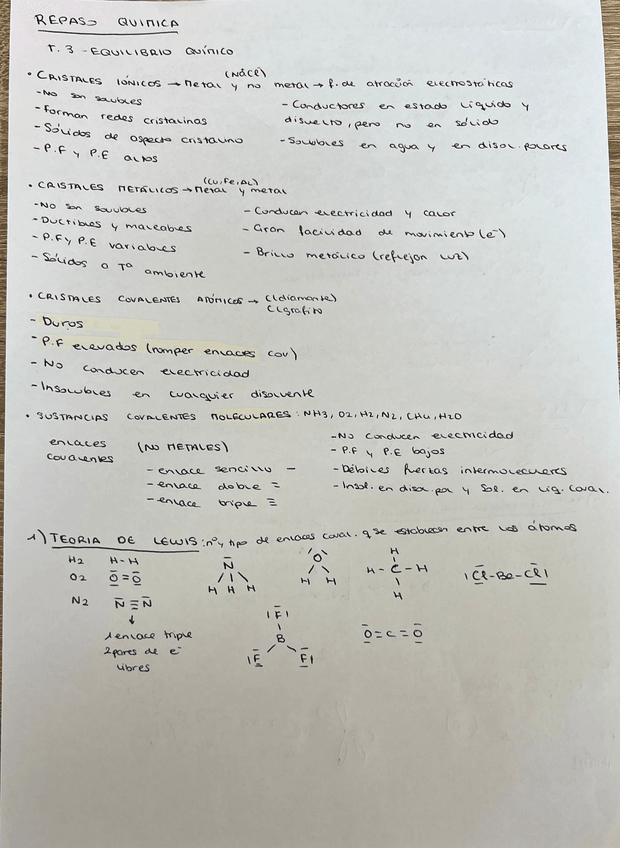 REPASO QUIMICA
T. 3 - EQUILIBRIO QUÍMICO
(NaCl)
• CRISTALES IÓNICOS → Metal y no metal → f. de atracción electrostáticas
- No son solubles
- Forman redes cristalinas
- Sólidos de aspecto cristalino
- P.F y P.E altos
- Conductores en estado líquido y
disuelto, pero no en sólido
- Solubles en agua y en disol. polares
(Cu, Fe, Al)
• CRISTALES METÁLICOS → Metal y metal
- No son solubles
- Ductibles y maleables
- P.F y P.E variables
- Sólidos a Tº ambiente
- Conducen electricidad y calor
- Gran facilidad de movimiento (e⁻)
- Brillo metálico (reflejan luz)
• CRISTALES COVALENTES ATÓMICOS → C(diamante)
C(grafito
- Duros
- P.F elevados (romper enlaces cov)
- No conducen electricidad
- Insolubles en cualquier disolvente
• SUSTANCIAS COVALENTES MOLECULARES: NH3, O2, H2, N2, CH4, H2O
enlaces
covalentes
(NO METALES)
- enlace sencillo –
- enlace doble =
- enlace triple ≡
- No conducen electricidad
- P.F y P.E bajos
- Débiles fuerzas intermoleculares
- Insol. en disol. pol y Sol. en liq. coval.
1) TEORIA DE LEWIS: nº y tipo de enlaces coval. q se establecen entre los átomos
H2 H-H
O2 O=O
N2 N≡N
↓
1 enlace triple
2 pares de e⁻
libres
N
H H H
O
H H
H
H-C-H
H
Cl-Be-Cl
F
B
F F
O=C=O